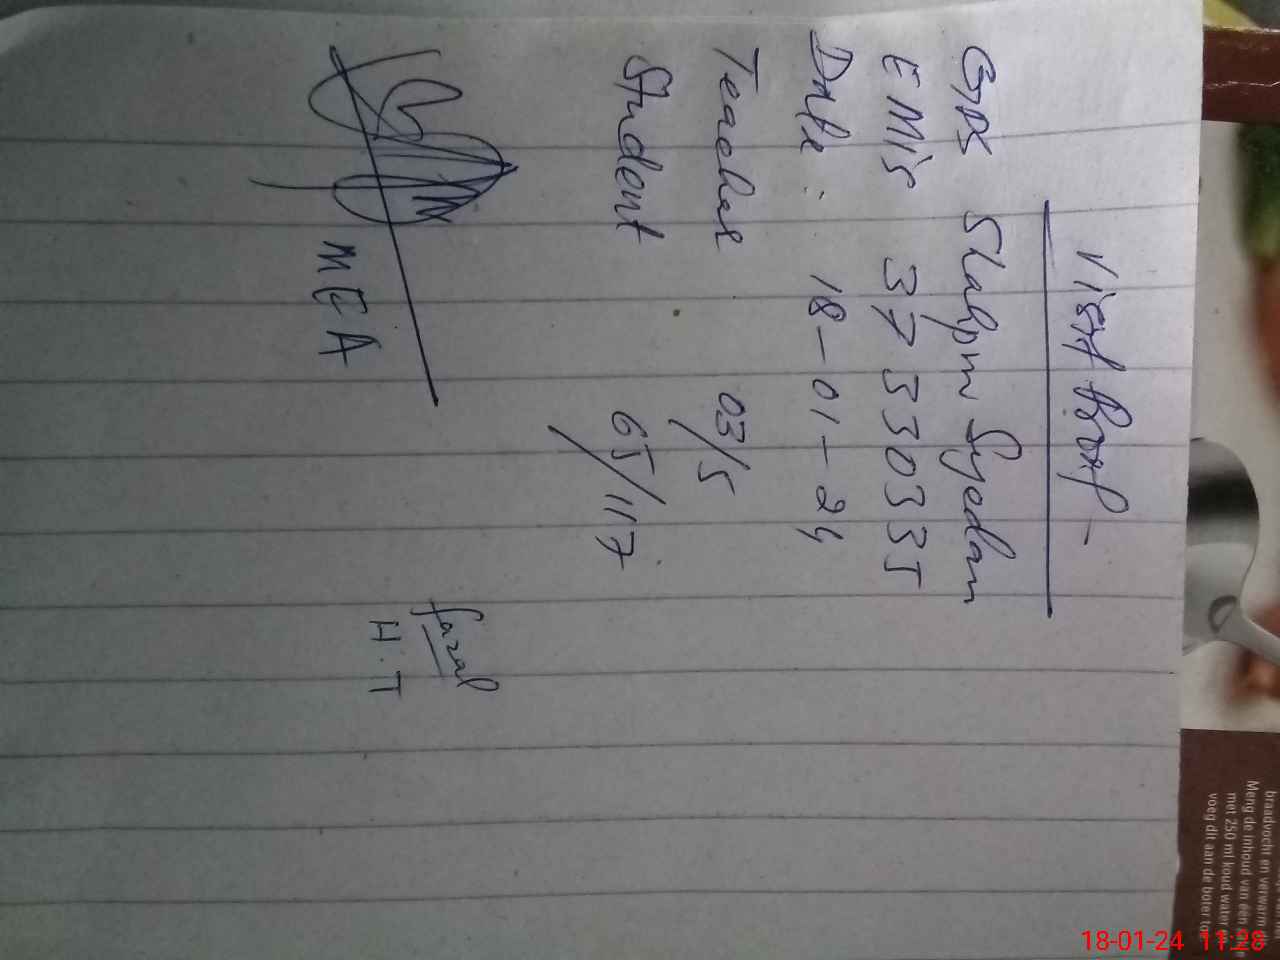 Visit Proof -
GPS Shahpur Syedan
EMis 37330335
Date : 18-01-24
Teacher 03/5
Student 65/117
MEA
fazal
H.T
braadvocht en verwarm
Meng de inhoud van één
met 250 ml koud water
voeg dit aan de boter to
18-01-24 11:28